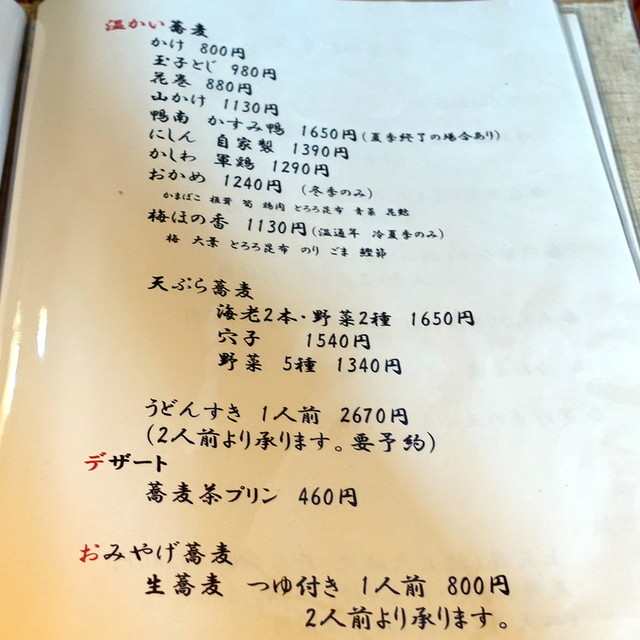 温かい蕎麦
かけ 800円
玉子とじ 980円
花巻 880円
山かけ 1130円
鴨南 かすみ鴨 1650円(夏季終了の場合あり)
にしん 自家製 1390円
かしわ 軍鶏 1290円
おかめ 1240円 (冬季のみ)
かまぼこ 椎茸 筍 鶏肉 とろろ昆布 青菜 花麩
梅ほの香 1130円(温通年 冷夏季のみ)
梅 大葉 とろろ昆布 のり ごま 鰹節
天ぷら蕎麦
海老2本・野菜2種 1650円
穴子 1540円
野菜 5種 1340円
うどんすき 1人前 2670円
(2人前より承ります。要予約)
デザート
蕎麦茶プリン 460円
おみやげ蕎麦
生蕎麦 つゆ付き 1人前 800円
2人前より承ります。